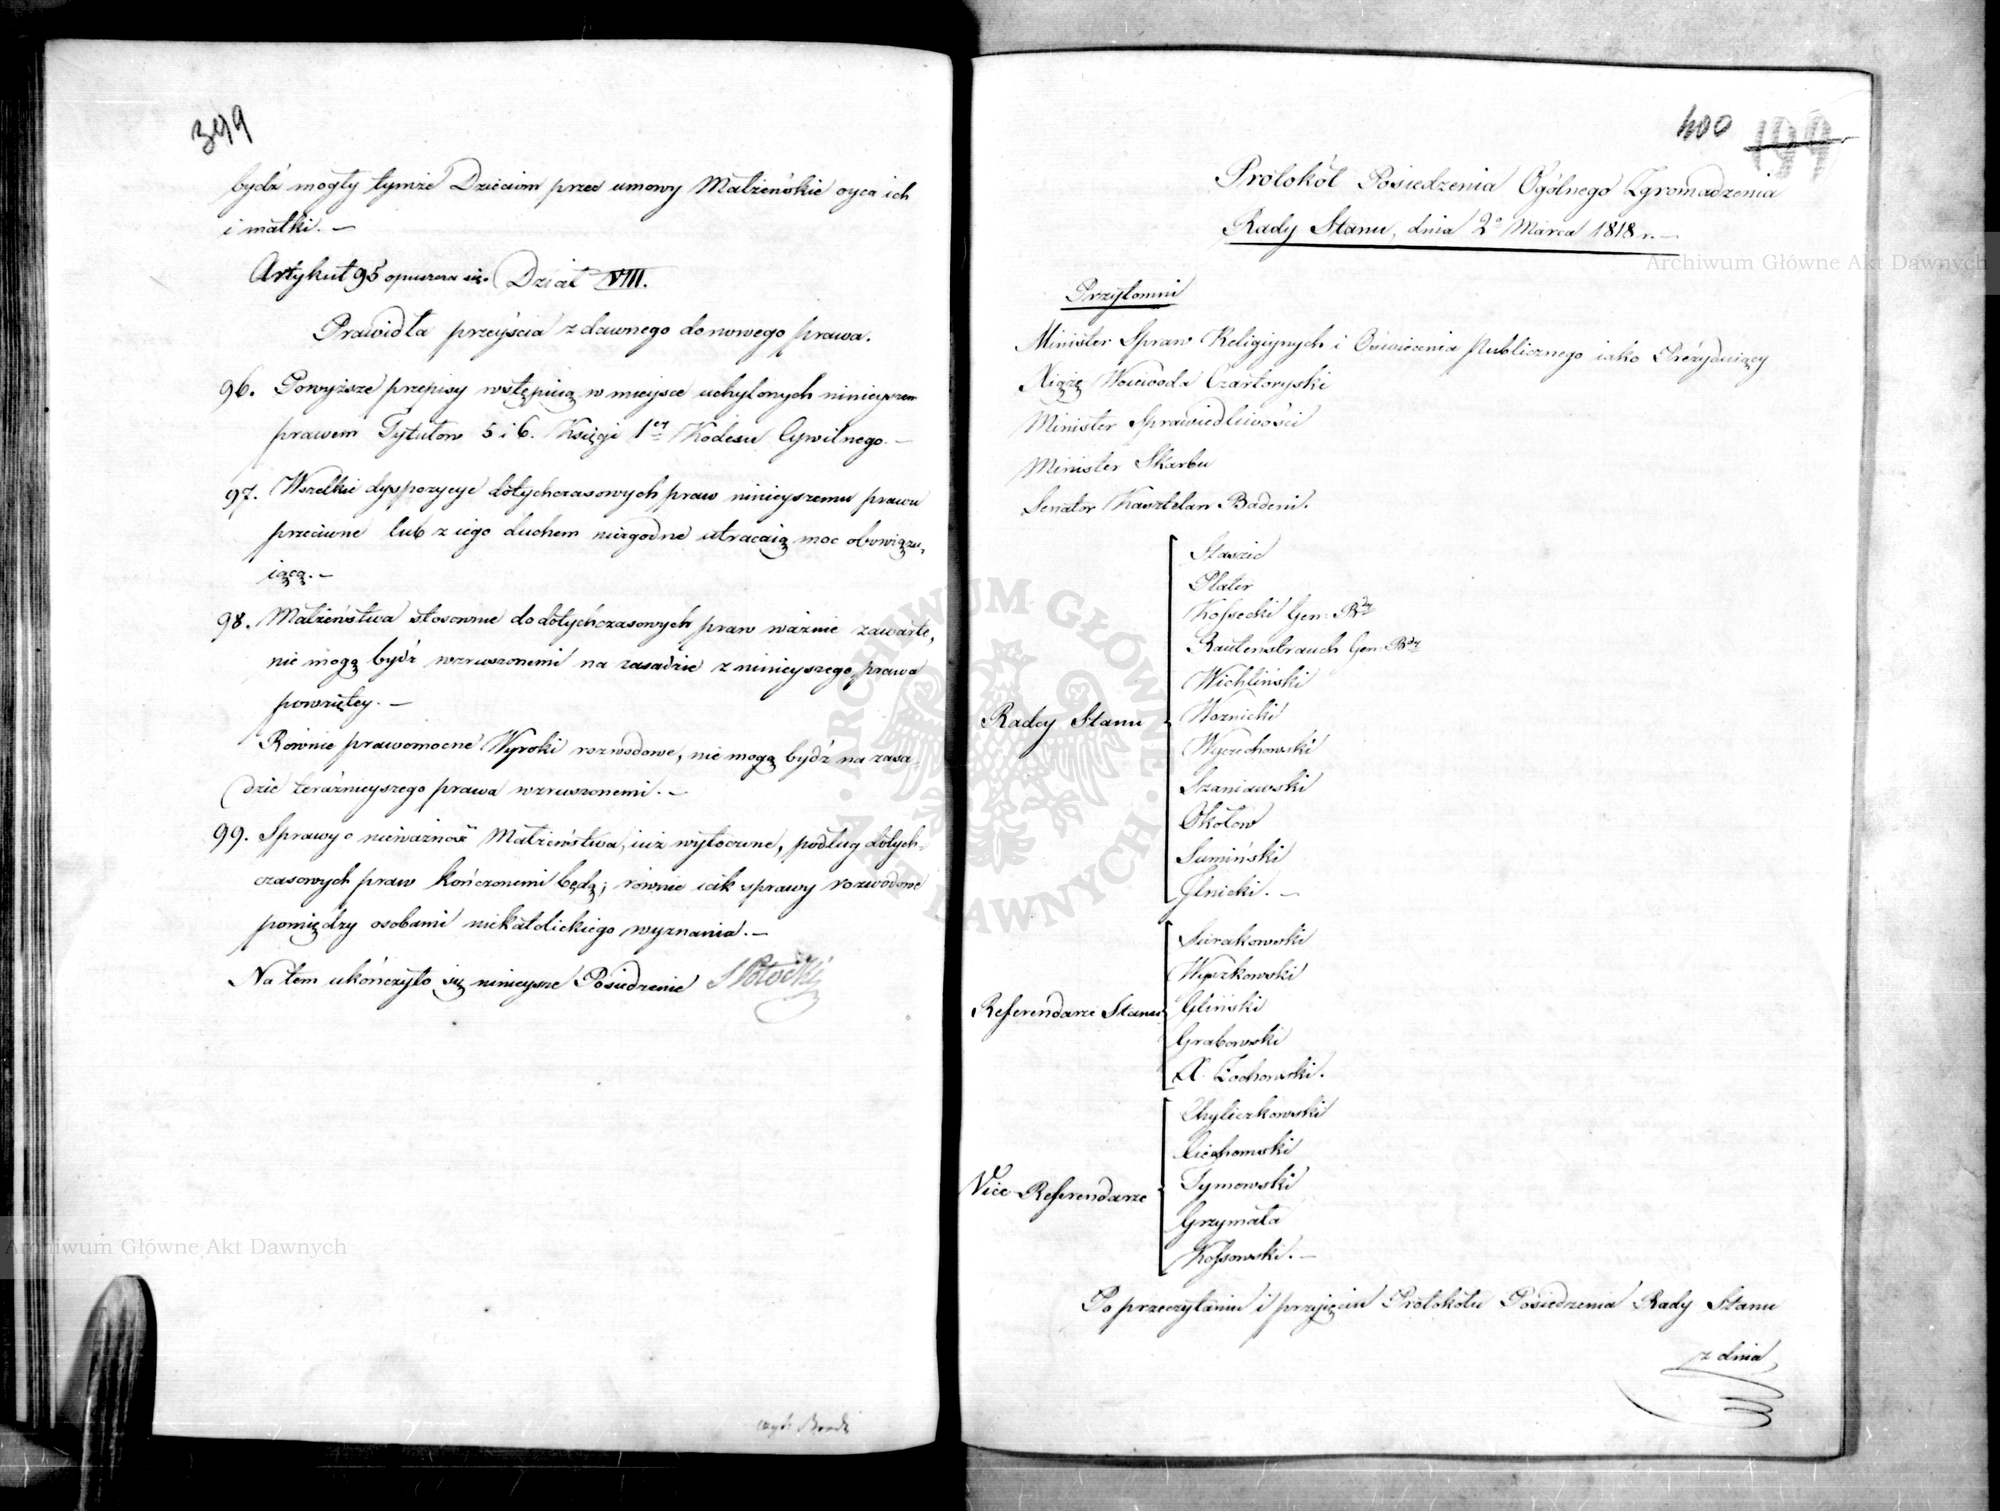 399
bydź mogły tymże Dzieciom przez umowy Małżeńskie oyca ich
i matki. —
Artykuł 95 opuszcza się. Dział VIII.
Prawidła przeyścia z dawnego do nowego prawa.
96. Powyższe przepisy wstępuią w mieysce uchylonych ninieyszem
prawem Tytułów 5 i 6. Księgi 1er Kodexu Cywilnego. —
97. Wszelkie dyspozycye dotychczasowych praw ninieyszemu prawu
przeciwne lub z iego duchem niezgodne utracaią moc obowiązu-
iącą. —
98. Małżeństwa stosownie do dotychczasowych praw ważnie zawarte,
nie mogą bydź wzruszonemi na zasadzie z ninieyszego prawa
powziętey. —
Równie prawomocne Wyroki rozwodowe, nie mogą bydź na zasa-
dzie teraźnieyszego prawa wzruszonemi. —
99. Sprawy o nieważność Małżeństwa, iuż wytoczone, podług dotych-
czasowych praw kończonemi będą; równie iak sprawy rozwodowe
pomiędzy osobami niekatolickiego wyznania. —
Na tem ukończyło się ninieysze Posiedzenie S Potocki
400 199
Protokół Posiedzenia Ogólnego Zgromadzenia
Rady Stanu, dnia 2o Marca 1818 r. —
Przytomni
Minister Spraw Religiynych i Oświecenia Publicznego iako Prezyduiący
Xiąże Woiewoda Czartoryski
Minister Sprawiedliwości
Minister Skarbu
Senator Kasztelan Badeni.
Radcy Stanu
Staszic
Plater
Kossecki Gen: Bdy
Rautenstrauch Gen: Bdy
Wichliński
Woznicki
Wyczechowski
Szaniawski
Okołow
Sumiński
Glnicki. —
Referendarze Stanu
Sierakowski
Wyszkowski
Gliński
Grabowski
X. Zochowski.
Vice Referendarze
Chyliczkowski
Ciechomski
Tymowski
Grzymała
Kossowski. —
Po przeczytaniu i przyięciu Protokółu Posiedzenia Rady Stanu
z dnia
Archiwum Główne Akt Dawnych
Archiwum Główne Akt Dawnych
· ARCHIWUM GŁÓWNE · AKT DAWNYCH ·